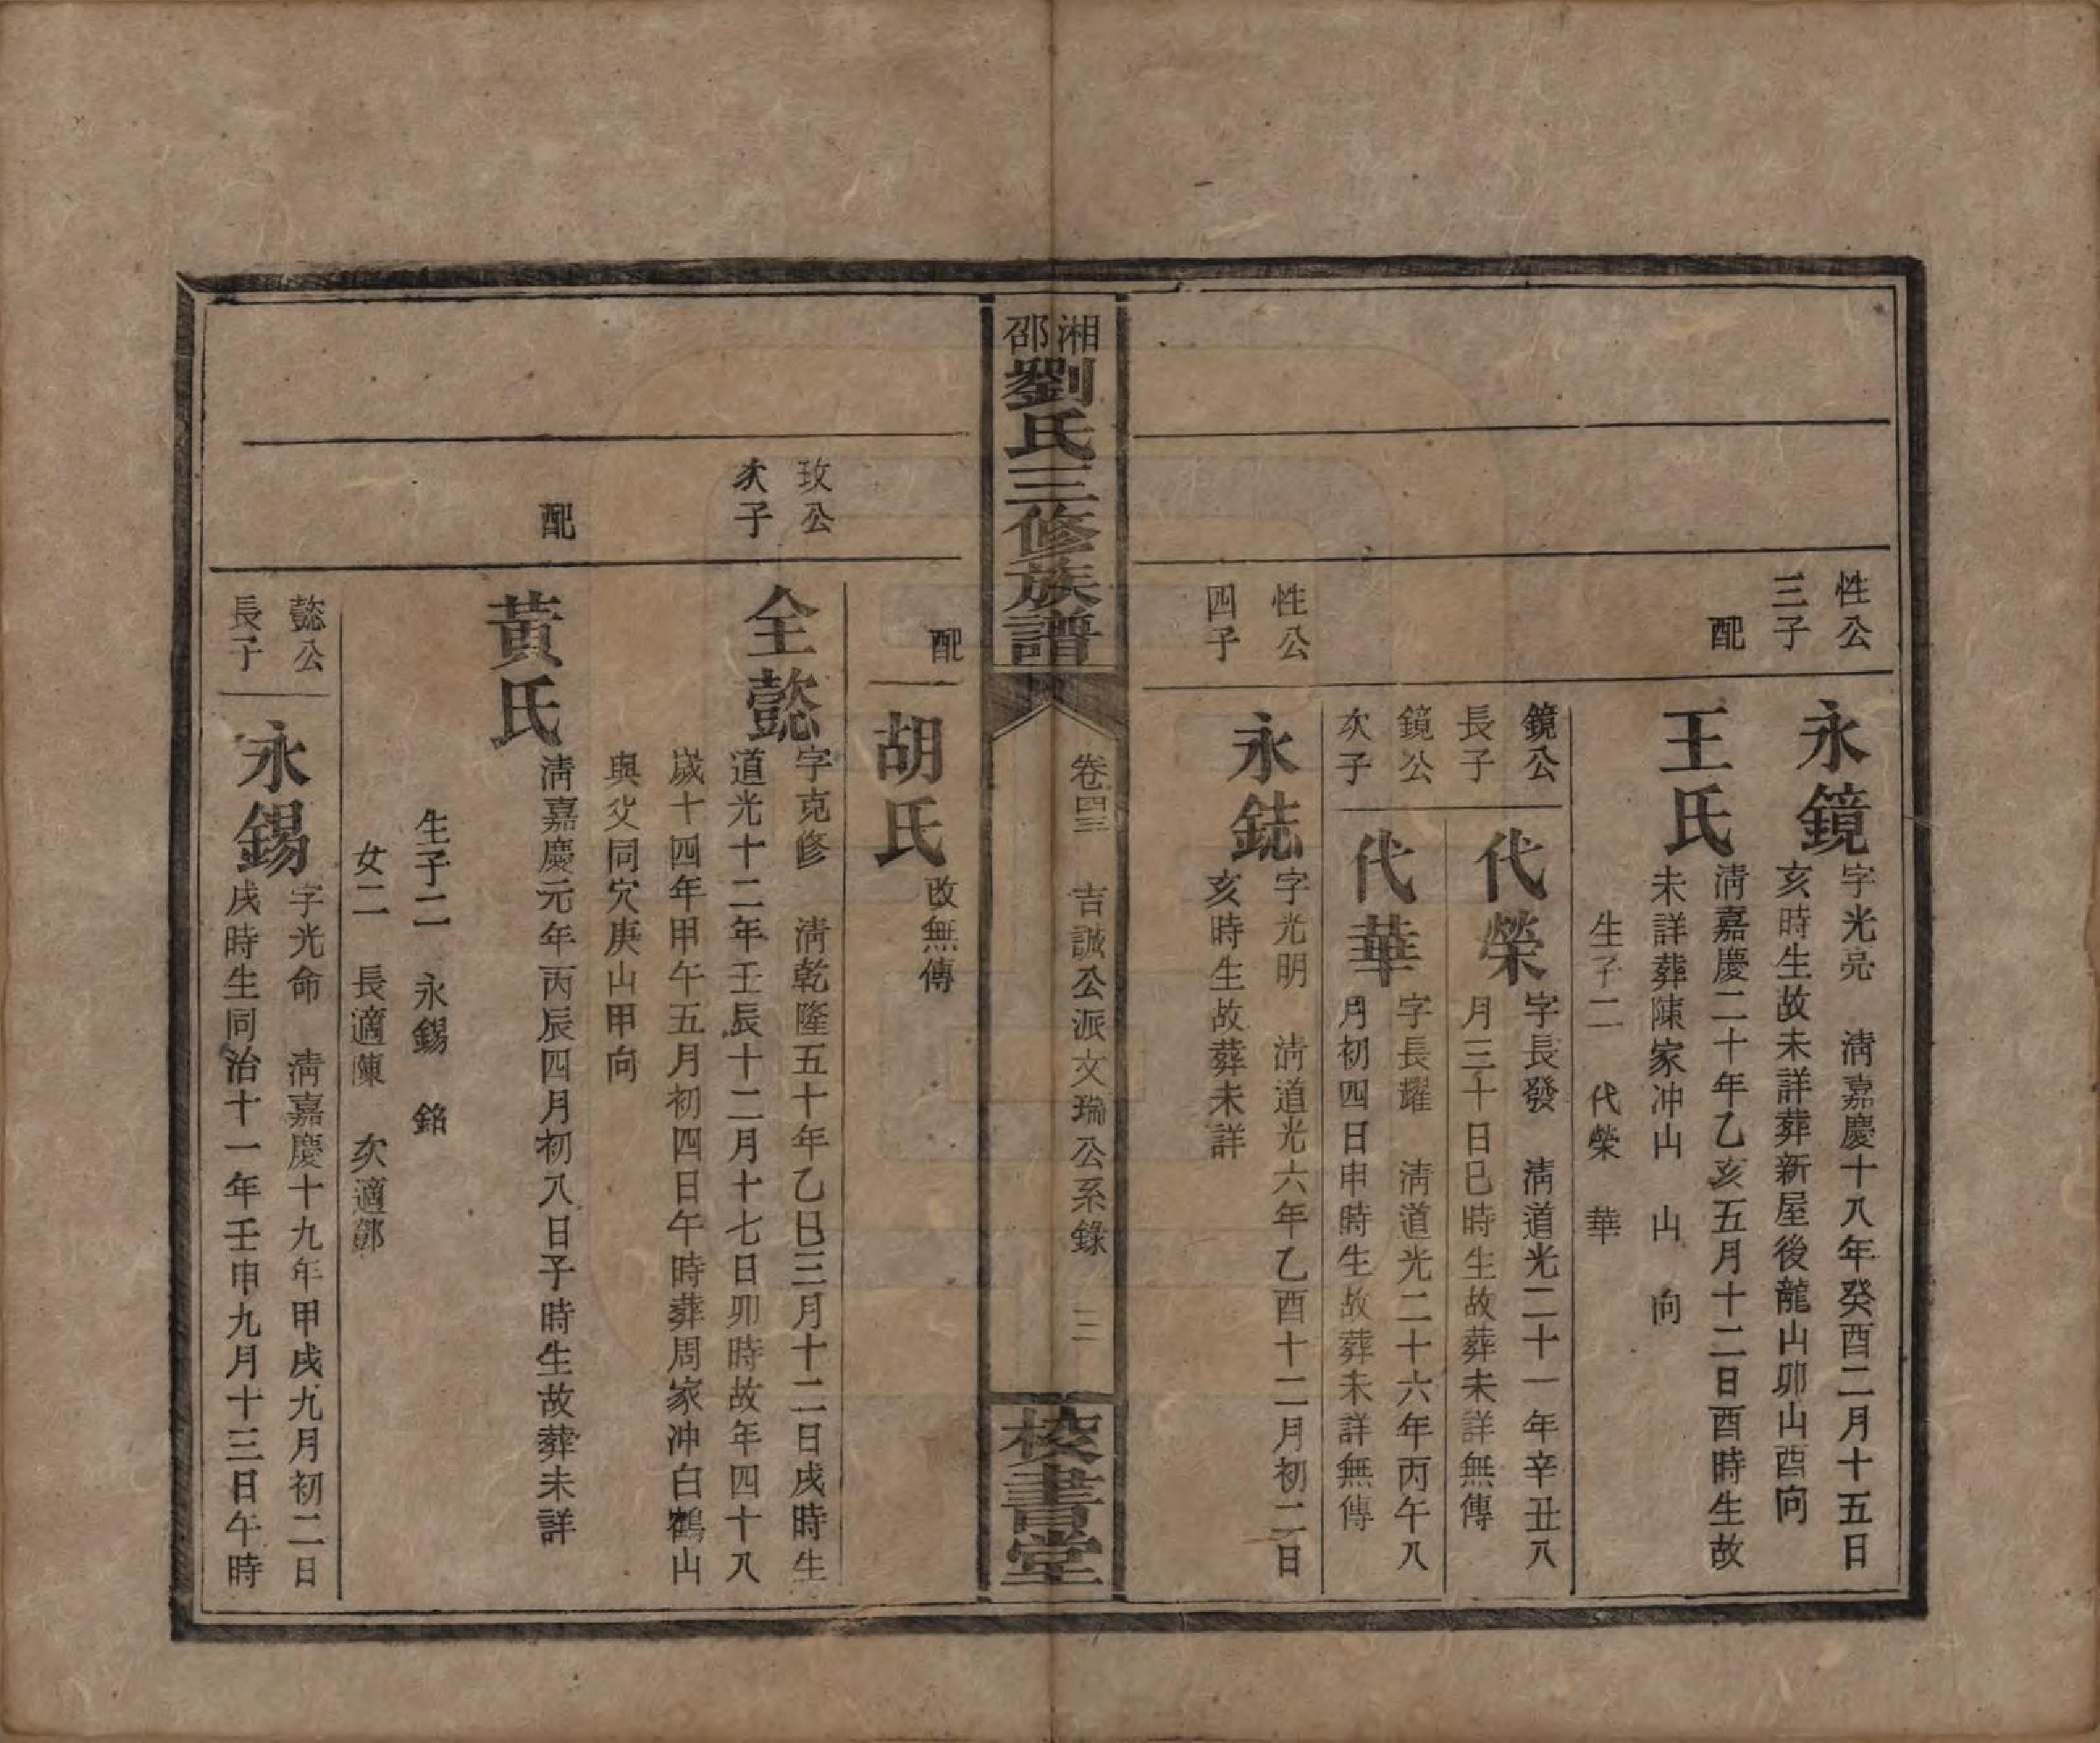 性公
三子
永鏡
字光亮　淸嘉慶十八年癸酉二月十五日
亥時生故未詳葬新屋後龍山卯山酉向
配
王氏
淸嘉慶二十年乙亥五月十二日酉時生故
未詳葬陳家冲山　山　向
生子二　代榮　華
鏡公
長子
代榮
字長發　淸道光二十一年辛丑八
月三十日巳時生故葬未詳無傳
鏡公
次子
代華
字長耀　淸道光二十六年丙午八
月初四日申時生故葬未詳無傳
性公
四子
永鋕
字光明　淸道光六年乙酉十二月初二日
亥時生故葬未詳
湘邵劉氏三修族譜
卷四三　吉誠公派文瑞公系錄　三
校書堂
配
胡氏
改無傳
玫公
次子
全懿
字克修　淸乾隆五十年乙巳三月十二日戌時生
道光十二年壬辰十二月十七日卯時故年四十八
歲十四年甲午五月初四日午時葬周家冲白鶴山
與父同穴庚山甲向
配
黃氏
淸嘉慶元年丙辰四月初八日子時生故葬未詳
生子二　永錫　銘
女二　長適陳　次適鄧
懿公
長子
永錫
字光命　淸嘉慶十九年甲戌九月初二日
戌時生同治十一年壬申九月十三日午時